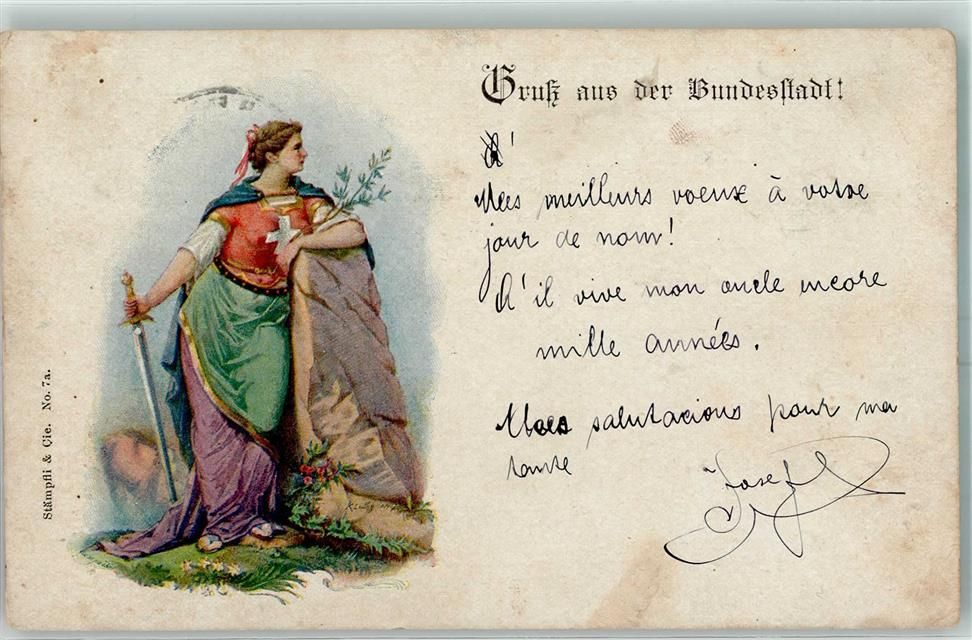 Gruß aus der Bundesstadt!
Mes meilleurs voeux à votre
jour de nom!
A'il vive mon oncle encore
mille années.
Mes salutacions pour ma
tante
Josef
Stämpfli & Cie. No. 7a.